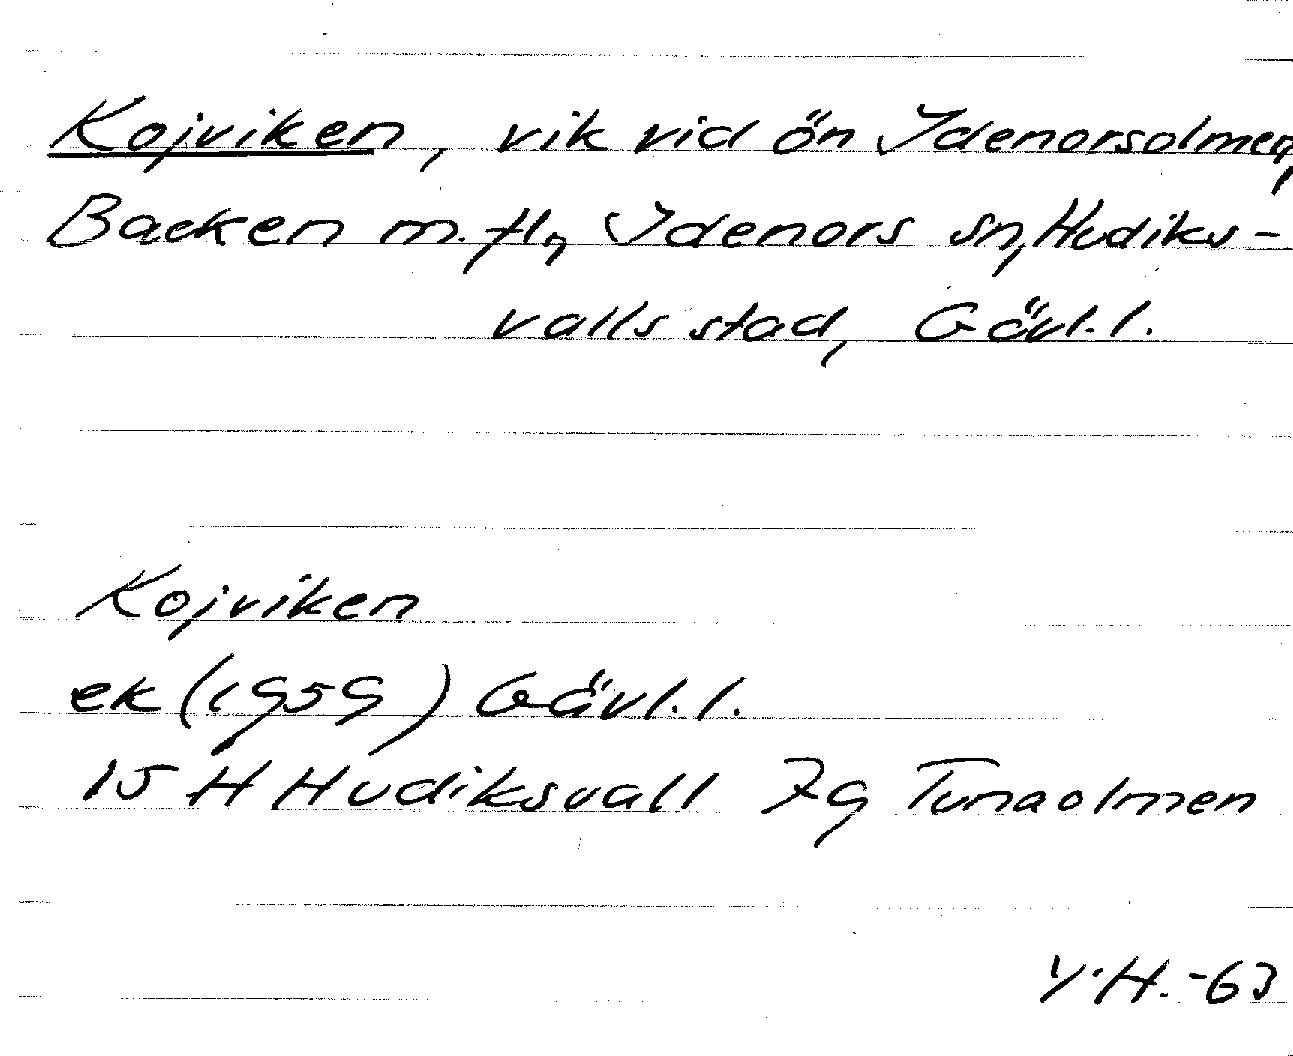 Kojviken, vik vid ön Idenorsolmen,
Backen m.fl, Idenors sn, Hudiks-
valls stad, Gävl.l.
Kojviken
ek (1959) Gävl.l.
15 H Hudiksvall 7g Tunaolmen
Y.H.-63